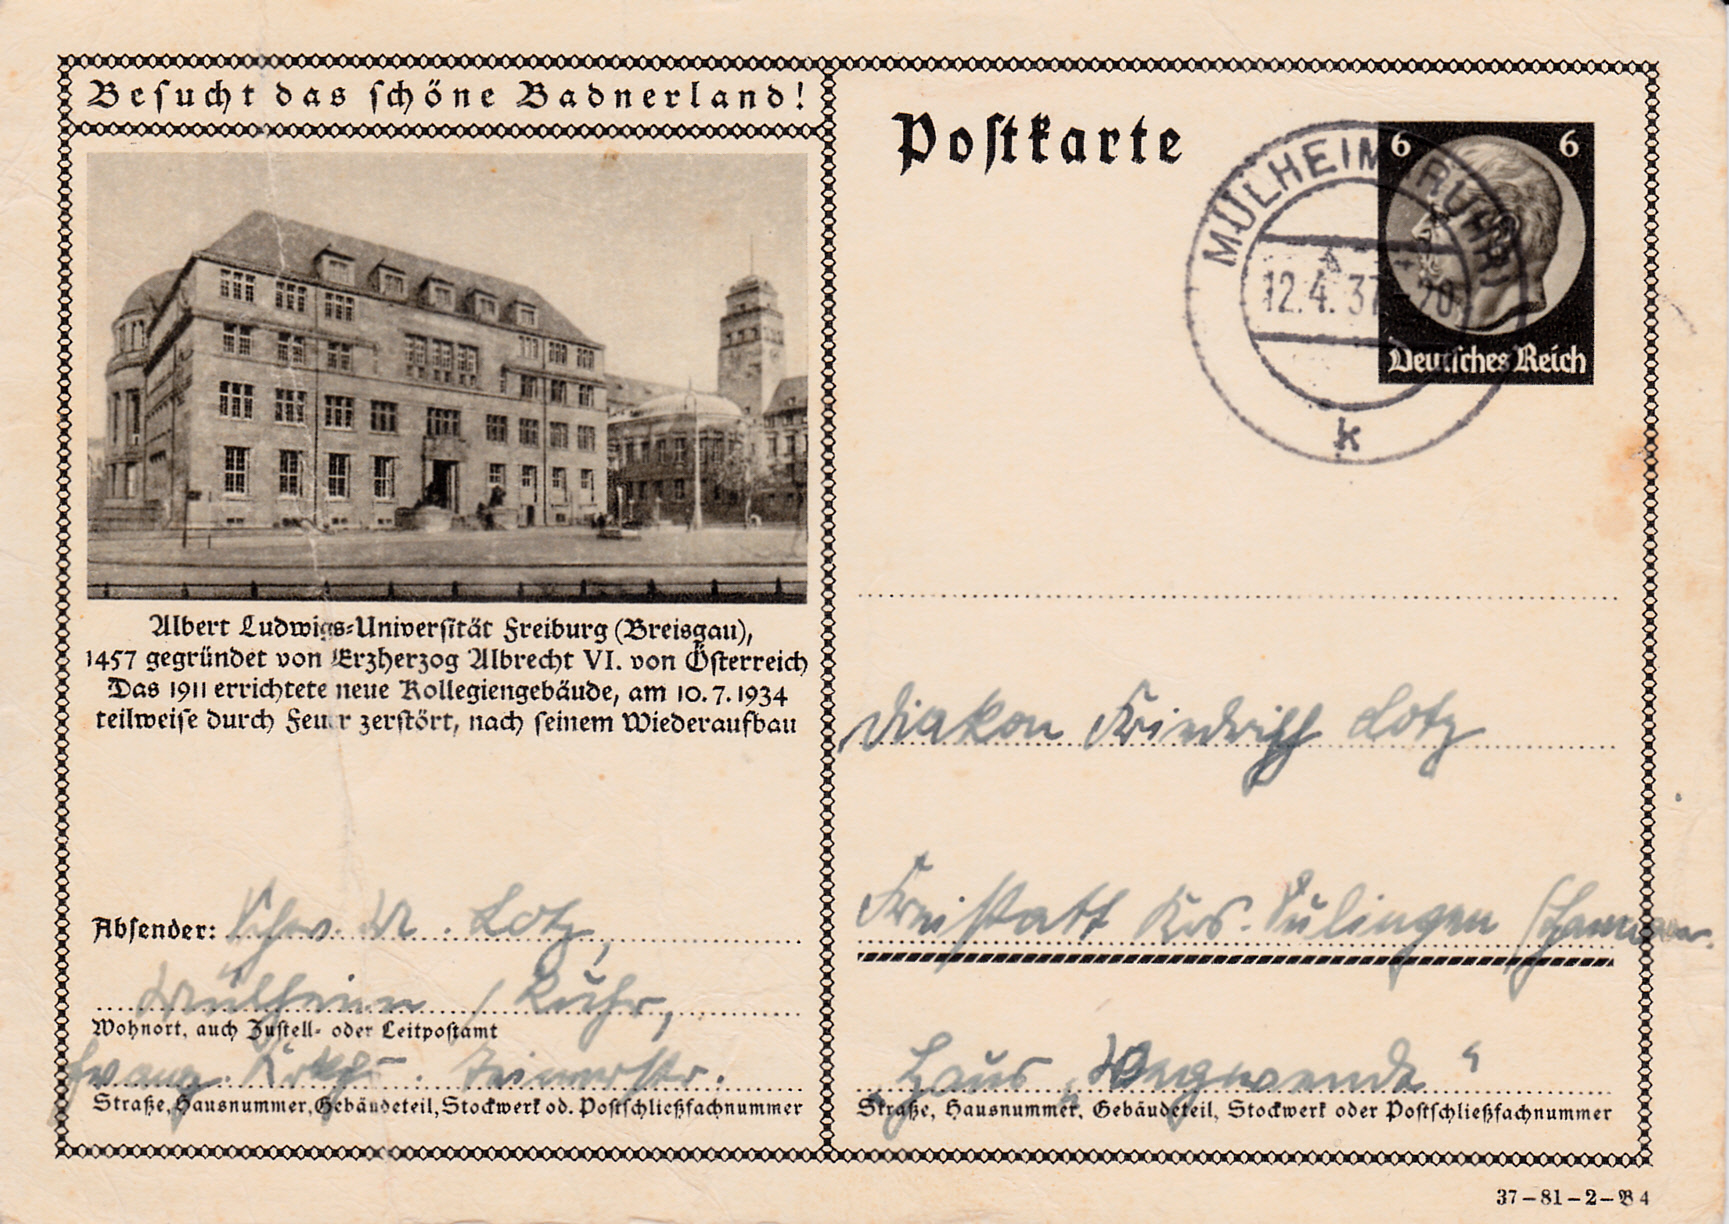 Besucht das schöne Badnerland!
Postkarte
6 6
MÜLHEIM (RUHR)
12.4.37 20
k
Deutsches Reich
Albert Ludwigs-Universität Freiburg (Breisgau),
1457 gegründet von Erzherzog Albrecht VI. von Österreich
Das 1911 errichtete neue Kollegiengebäude, am 10.7.1934
teilweise durch Feuer zerstört, nach seinem Wiederaufbau
Diakon Friedrich Lotz
Freistatt Krs. Sulingen /Hannover.
Haus „Wegwende“
Straße, Hausnummer, Gebäudeteil, Stockwerk oder Postschließfachnummer
Absender: Schw. M. Lotz,
Mülheim / Ruhr,
Wohnort, auch Zustell- oder Leitpostamt
Evang. Krkhs.
Straße, Hausnummer, Gebäudeteil, Stockwerk od. Postschließfachnummer
37-81-2-B4